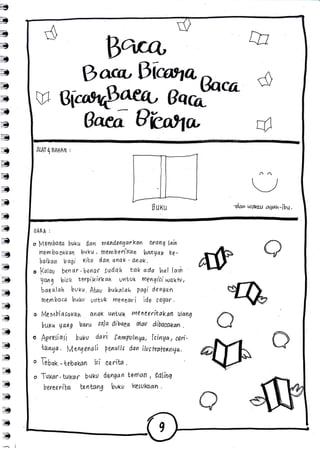 Baca,
Baca, Bicara
Baca
Bicara, Baca, Baca
Baca Bicara
ALAT & BAHAN :
BUKU
dan waktu ayah-ibu.
CARA :
o Membaca buku dan mendengarkan orang lain
membacakan buku, memberikan banyak ke-
baikan bagi kita dan anak-anak.
o Kalau benar-benar sudah tak ada hal lain
yang bisa terpikirkan untuk mengisi waktu,
bacalah buku. Atau bukalah pagi dengan
membaca buku untuk mencari ide segar.
o Membiasakan anak untuk menceritakan ulang
buku yang baru saja dibaca atau dibacakan.
o Apresiasi buku dari Sampulnya, Isinya, ceri-
tanya. Mengenali penulis dan ilustratornya.
o Tebak-tebakan isi cerita.
o Tukar-tukar buku dengan teman, Saling
bercerita tentang buku kesukaan.
9